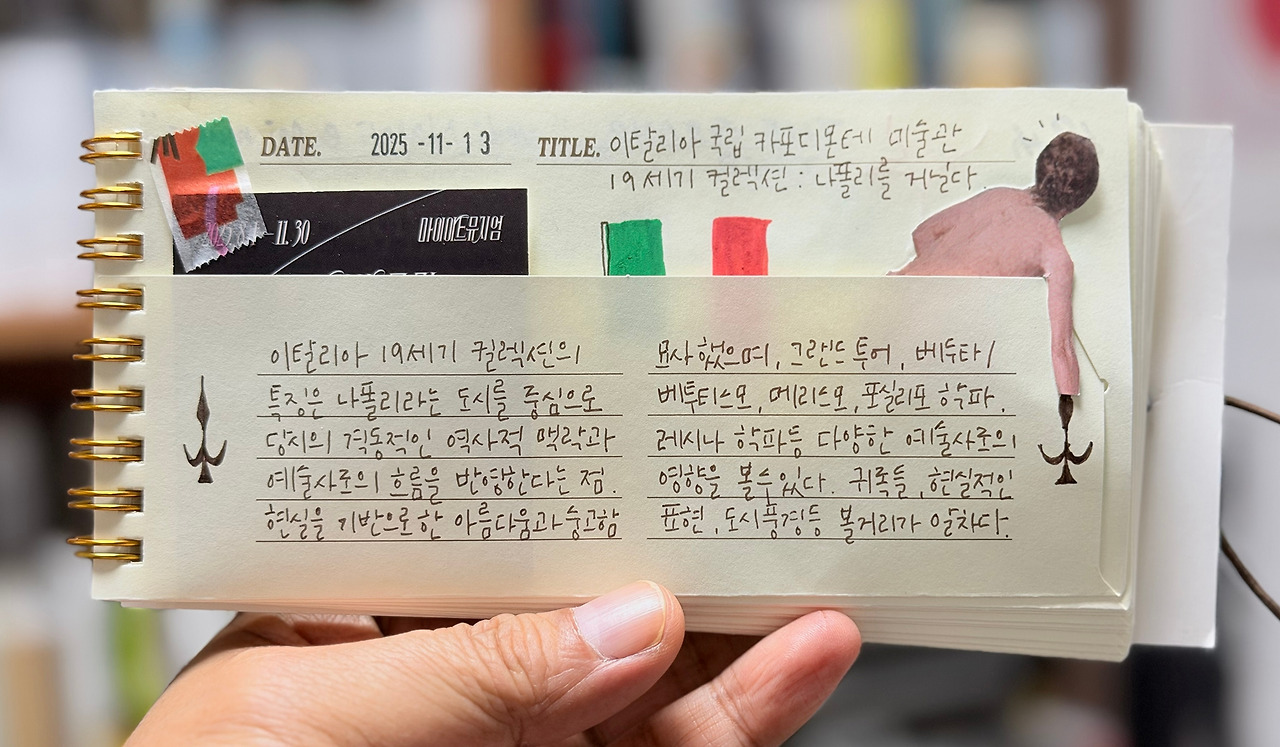 DATE. 2025-11-13
TITLE. 이탈리아 국립 카포디몬테 미술관
19세기 컬렉션 : 나폴리를 거닐다.
11.30
마이아트뮤지엄
이탈리아 19세기 컬렉션의
특징은 나폴리라는 도시를 중심으로
당시의 격동적인 역사적 맥락과
예술사조의 흐름을 반영한다는 점.
현실을 기반으로한 아름다움과 숭고함
묘사했으며, 그랜드 투어, 베두타 /
베두티스모, 메리스모, 포실리포 학파.
레시나 학파등 다양한 예술사조의
영향을 볼수 있다. 귀족들, 현실적인
표현, 도시풍경등 볼거리가 알차다.